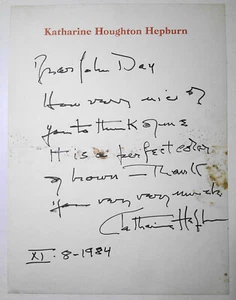 Katharine Houghton Hepburn
Dear John Day
How very nice of
you to think of me
It is a perfect color
of brown — Thank
you very very much
Katharine Hepburn
XI · 8 - 1984